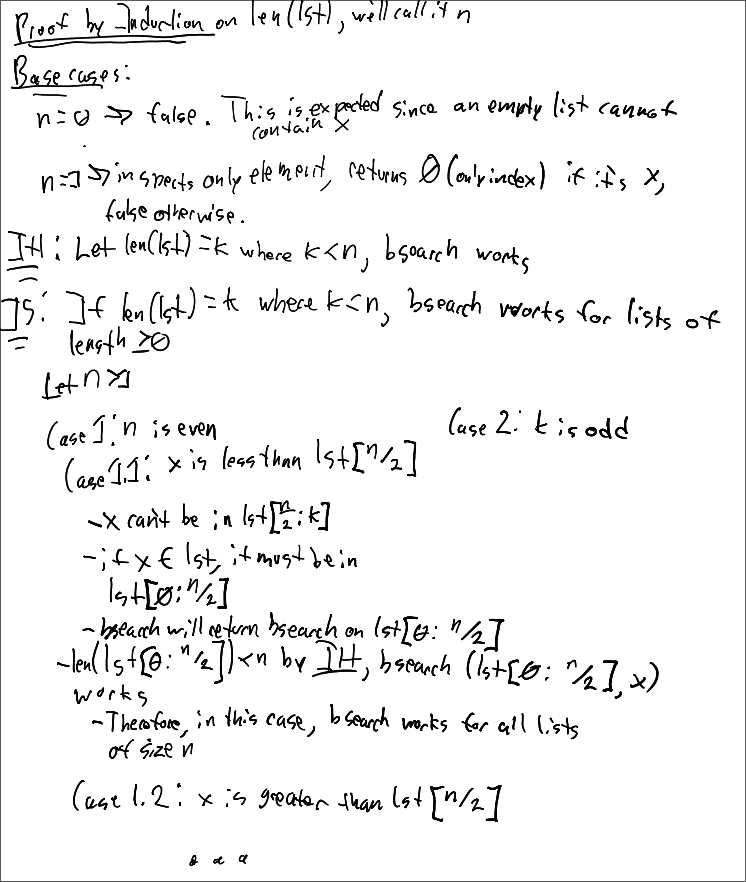 Proof by Induction on len(lst), we'll call it n
Base cases:
n=0 => false. This is expected since an empty list cannot
contain x
n=1 => inspects only element, returns 0 (only index) if it's x,
false otherwise.
IH: Let len(lst)=k where k<n, bsearch works
IS: If len(lst)=k where k<n, bsearch works for lists of
length ≥0
Let n>1
Case 1: n is even
Case 2: k is odd
Case 1.1: x is less than lst[n/2]
-x can't be in lst[n/2:k]
-if x ∈ lst, it must be in
lst[0:n/2]
-bsearch will return bsearch on lst[0: n/2]
-len(lst[0: n/2])<n by IH, bsearch (lst[0: n/2], x)
works
-Therefore, in this case, bsearch works for all lists
of size n
Case 1.2: x is greater than lst[n/2]
...